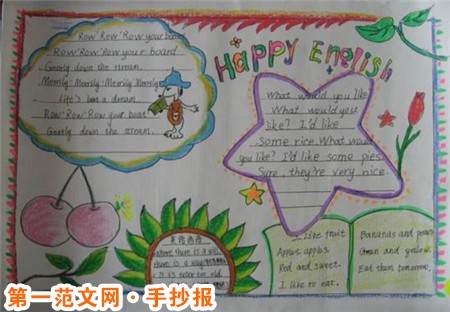 Happy English
Row Row Row your boat
Row Row Row your board
Gently down the stream.
Merrily Merrily Merrily Merrily
Life's but a dream.
Row Row Row your boat
Gently down the stream.
What would you like
What would you
like? I'd like
Some rice. What would
you like? I'd like some pies
Sure, they're very nice
英语谚语
Where there is a will,
there is a way.
It is never too old
I like fruit
apples.
Red and sweet.
I like to eat.
Bananas and pears
Green and yellow.
Eat them tomorrow.
第一范文网·手抄报